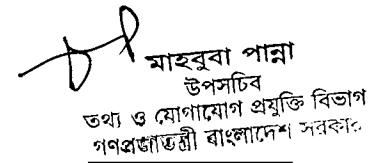 মাহবুবা পান্না
উপসচিব
তথ্য ও যোগাযোগ প্রযুক্তি বিভাগ
গণপ্রজাতন্ত্রী বাংলাদেশ সরকার